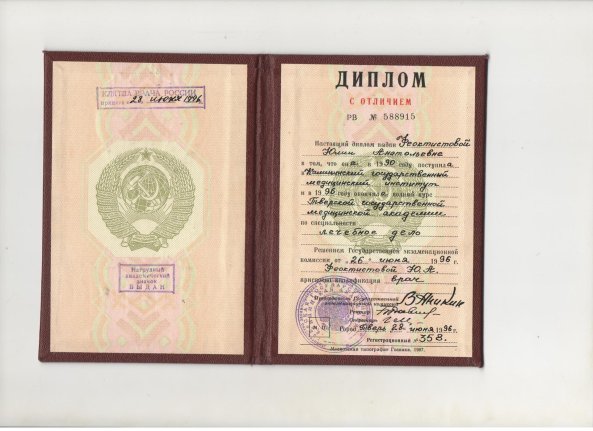 КЛЯТВА ВРАЧА РОССИИ
28 июня 1996
Нагрудный
академический
знак
ВЫДАН
ДИПЛОМ
С ОТЛИЧИЕМ
РВ № 588915
Настоящий диплом выдан Феоктистовой
Юлии Анатольевне
в том, что она в 1990 году поступила
в Калининский государственный
медицинский институт
и в 1996 окончила полный курс
Тверской государственной
медицинской академии
по специальности
лечебное дело
Решением Государственной экзаменационной
комиссии от "26" июня 1996 г.
Феоктистовой Ю.А.
присвоена квалификация врач
Председатель Государственной
экзаменационной комиссии
Ректор
Секретарь
Город Тверь 28 июня 1996 г.
Регистрационный № 358.
Московская типография Гознака. 1987.